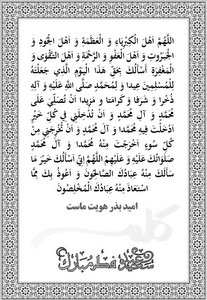 اللّهُمَّ اَهْلَ الْکِبْرِیَاءِ وَ الْعَظَمَةِ وَ اَهْلَ الْجُودِ وَ
الْجَبَرُوتِ وَ اَهْلَ الْعَفْوِ وَ الرَّحْمَةِ وَ اَهْلَ التَّقْوَى وَ
الْمَغْفِرَةِ اَسْأَلُكَ بِحَقِّ هَذَا الْیَوْمِ الَّذِی جَعَلْتَهُ
لِلْمُسْلِمِینَ عِیدا وَ لِمُحَمَّدٍ صَلَّى اللهُ عَلَیْهِ وَ آلِهِ
ذُخْرا وَ شَرَفا وَ کَرَامَتا و مَزِیدا اَنْ تُصَلِّیَ عَلَى
مُحَمَّدٍ وَ آلِ مُحَمَّدٍ وَ اَنْ تُدْخِلَنِی فِی کُلِّ خَیْرٍ
اَدْخَلْتَ فِیهِ مُحَمَّدا وَ آلَ مُحَمَّدٍ وَ اَنْ تُخْرِجَنِی مِنْ
کُلِّ سُوءٍ اَخْرَجْتَ مِنْهُ مُحَمَّدا وَ آلَ مُحَمَّدٍ
صَلَوَاتُكَ عَلَیْهِ وَ عَلَیْهِمْ اللّهُمَّ اِنِّی اَسْأَلُكَ خَیْرَ مَا
سَأَلَكَ مِنْهُ عِبَادُكَ الصَّالِحُونَ وَ اَعُوذُ بِكَ مِمَّا
اسْتَعَاذَ مِنْهُ عِبَادُكَ الْمُخْلِصُونَ
امید بذر هویت ماست
عید فطر مبارک